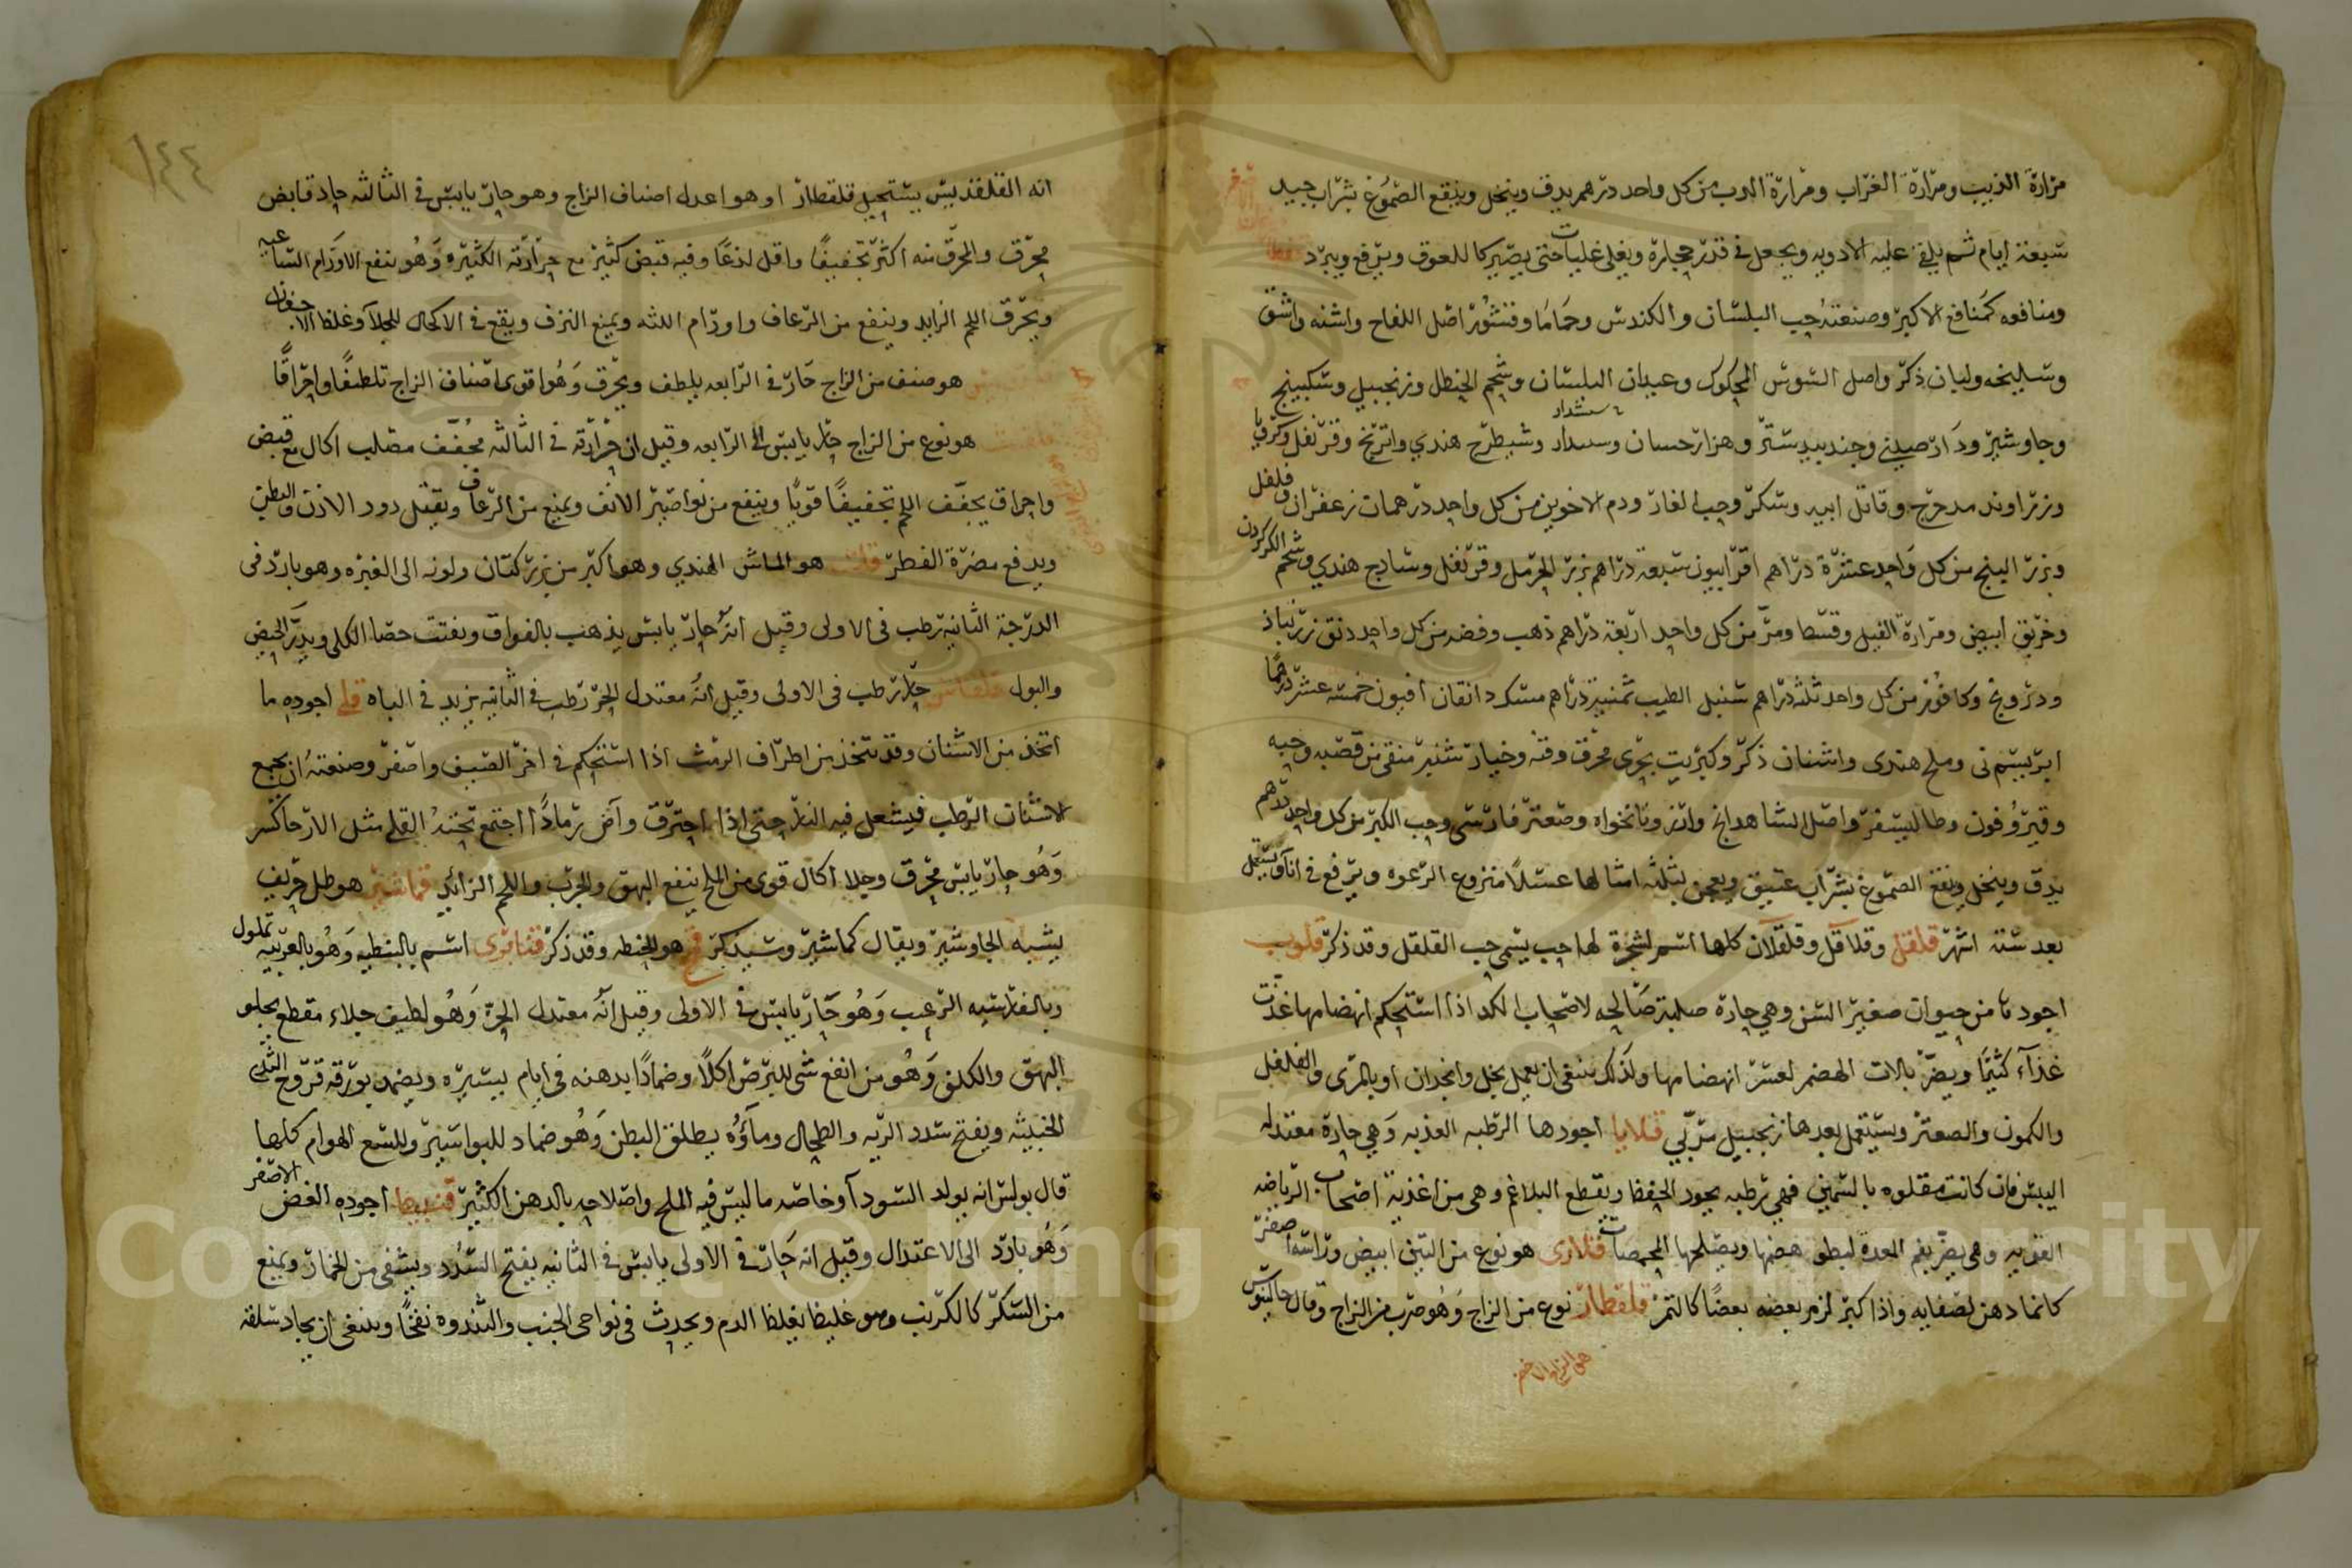 مرارة الذيب ومرارة الغراب ومرارة الدب من كل واحد درهم يدق وينخل وينقع الصموغ بشراب جيد
سبعة ايام ثم يلقى عليه الادويه ويجعل في قدر حجاره ويغلى غليات حتى يصير كاللعوق ويرفع ويبرد
ومنافعه كمنافع الاكبر وصنعته حب البلسان والكندس وحماما وقشور اصل اللفاح واشنه واشق
وسليخه ولبان ذكر واصل السوس المحكوك وعيدان البلسان وشحم الحنظل وزنجبيل وسكبينج
وجاوشير ودارصيني وجندبيدستر وهزارجسان وشيطرج هندي واترنج وقرنفل
وزراوند مدحرج وقاتل ابيه وسكر وحب الغار ودم الاخوين من كل واحد درهمان زعفران وفلفل
وبزر البنج من كل واحد عشرة دراهم افربيون سبعة دراهم بزر الحرمل وقرنفل وساذج هندي وشحم الكركدن
وخربق ابيض ومرارة الفيل وقسط ومر من كل واحد اربعة دراهم ذهب وفضه من كل واحد دنق زرنباذ
ودرونج وكافور من كل واحد ثلثه دراهم سنبل الطيب ثمنية دراهم مسك دانقان افيون خمسة عشر درهما
ابريسم نى وملح هندى واشنان ذكر وكبريت بحرى محرق وقنه وخيارشنبر منقى من قصبه وحبه
وقيروفون وطاليسفر واصل الشاهدانج وارز ونانخواه وصعتر فارسى وحب الكبر من كل واحد درهم
يدق وينخل وينقع الصموغ بشراب عتيق ويعجن بثلثه امثالها عسلا منزوع الرغوه ويرفع في اناء ويستعمل
بعد ستة اشهر قلقل وقلاقل وقلقلان كلها اسم لشجرة لها حب يسمى حب القلقل وقد ذكر قلوب
اجودها من حيوان صغير السن وهي حارة صلبة صالحه لاصحاب الكد اذا استحكم انهضامها غذت
غذاء كثيرا ويضر بالات الهضم لعسر انهضامها ولذلك ينبغى ان يعمل بخل وانجدان او بالمرى والفلفل
والكمون والصعتر ويستعمل بعدها زنجبيل مربى قلايا اجودها الرطبه العذبه وهي حارة معتدله
اليبس فان كانت مقلوه بالسمن فهي رطبه يجود الحفظ ويقطع البلاغم وهى من اغذية اصحاب الرياضه
القويه وهى يضر بفم المعدة لبطو هضمها ويصلحها المحمصات قلارى هو نوع من التين ابيض وراسه اصفر
كانما دهن لصفايه واذا كبر لزم بعضه بعضا كالتمر قلقطار نوع من الزاج وهو ضرب من الزاج وقال جالينوس
هى الزاج الاخضر
١٤٤
انه القلقديس يستحيل قلقطار او هو اعدل اصناف الزاج وهو حار يابس في الثالثه حاد قابض
محرق والمحرق منه اكثر تجفيفا واقل لذعا وفيه قبض كثير مع حرارته الكثيره وهو ينفع الاورام الساعيه
ويحرق اللحم الزايد وينفع من الرعاف واورام اللثه ويمنع النزف ويقع في الاكحال للجلاء وغلظ الاجفان
هو صنف من الزاج حار في الرابعه يلطف ويحرق وهو اقوى اصناف الزاج تلطيفا واحراقا
هو نوع من الزاج حار يابس الى الرابعه وقيل ان حرارته في الثالثه مجفف مصلب اكال مع قبض
واحراق يجفف اللحم تجفيفا قويا وينفع من نواصير الانف ويمنع من الرعاف ويقتل دود الاذن والبطن
ويدفع مضرة الفطر قلت هو الماش الهندي وهو اكبر من بزر كتان ولونه الى الغبره وهو بارد فى
الدرجة الثانية رطب فى الاولى وقيل انه حار يابس يذهب بالفواق ويفتت حصا الكلى ويدر الحيض
والبول قلقاس حار رطب فى الاولى وقيل انه معتدل الحر رطب في الثانيه يزيد في الباه قلى اجوده ما
اتخذ من الاشنان وقد يتخذ من اطراف الرمث اذا استحكم في اخر الصيف واصفر وصنعته ان يجمع
الاشنان الرطب فيشعل فيه النار حتى اذا احترق وآض رمادا اجتمع تحته القلى مثل الارحا كسر
وهو حار يابس محرق وجلا اكال قوى من الملح ينفع البهق والجرب واللحم الزائد قماشير هو طل حريف
يشبه الجاوشير ويقال كماشير وسيذكر قمح هو الحنطه وقد ذكر قنابرى اسم بالنبطيه وهو بالعربيه تملول
وبالفارسيه الرغب وهو حار يابس في الاولى وقيل انه معتدل الحرة وهو لطيف جلاء مقطع يجلو
البهق والكلف وهو من انفع شى للبرص اكلا وضمادا يدهنه فى ايام يسيره ويضمد بورقه قروح الثدى
الخبيثه ويفتح سدد الريه والطحال وماؤه يطلق البطن وهو ضماد للبواسير وللسع الهوام كلها
قال بولس انه يولد السوداء وخاصه ما لبس فيه الملح واصلاحه بالدهن الكثير قنبيط اجوده الغض الاصفر
وهو بارد الى الاعتدال وقيل انه حار في الاولى يابس في الثانيه يفتح السدد ويشفى من الخمار ويمنع
من السكر كالكرنب وهو غليظ يغلظ الدم ويحدث فى نواحى الجنب والثندوه نفخا وينبغى ان يجاد سلقه
Copyright © King Saud University
1957